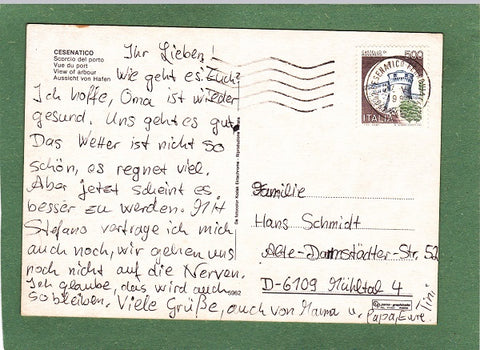 CESENATICO
Scorcio del porto
Vue du port
View of arbour
Aussicht von Hafen
Ihr Lieben!
Wie geht es Euch?
Ich hoffe, Oma ist wieder
gesund. Uns geht es gut.
Das Wetter ist nicht so
schön, es regnet viel.
Aber jetzt scheint es
besser zu werden. Mit
Stefano vertrage ich mich
auch noch, wir gehen uns
noch nicht auf die Nerven.
Ich glaube, das wird auch
so bleiben. Viele Grüße, auch von Mama u. Papa, Eure Timi
6962
500
ITALIA
CESENATICO
Familie
Hans Schmidt
Alte-Darmstädter-Str. 52
D-6109 Mühltal 4